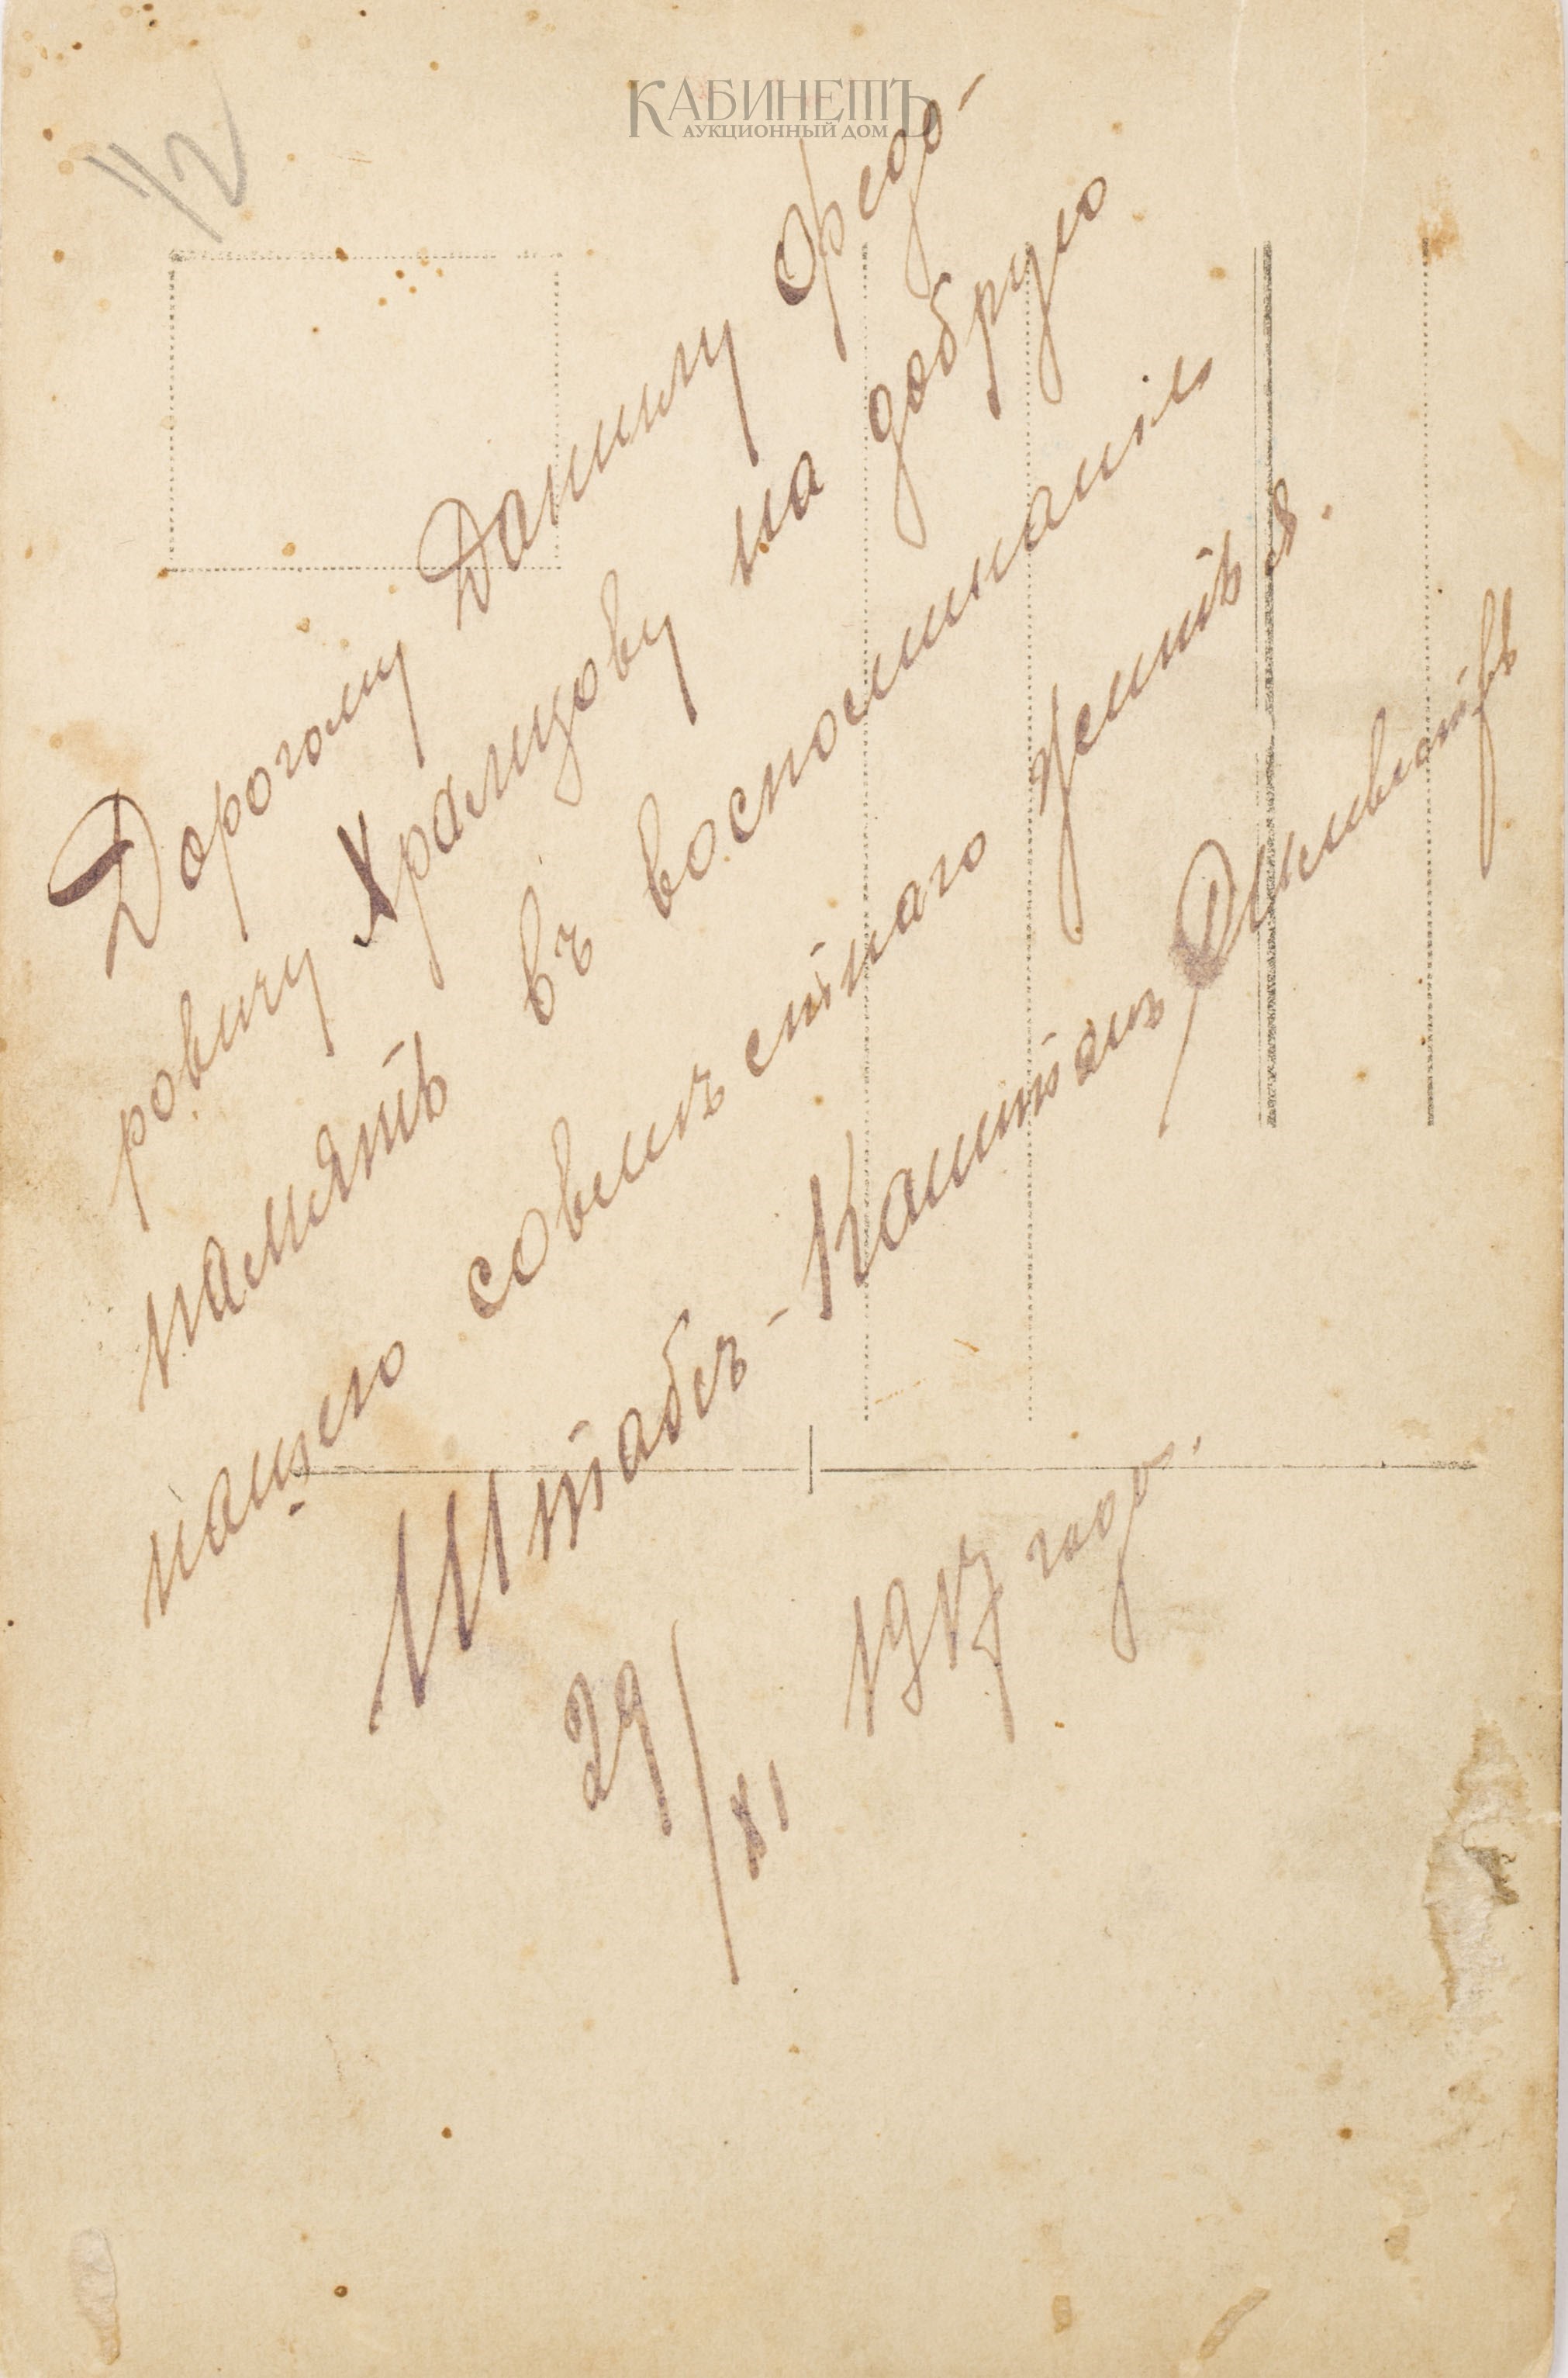 КАБИНЕТЪ
АУКЦИОННЫЙ ДОМ
1/2
Дорогому Данилу Ѳедо-
ровичу Храмцову на добрую
память въ воспоминаніе
нашего совмѣстнаго
Штабсъ-Капитанъ
29/XI 1917 года.